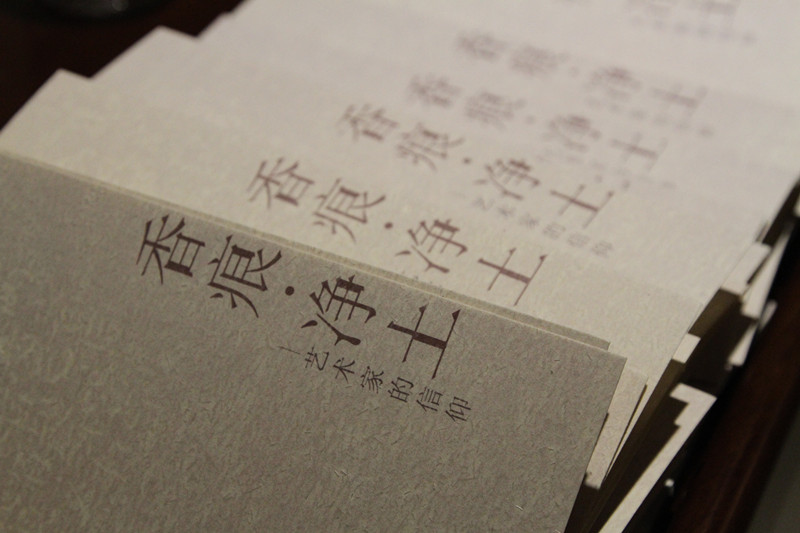 香痕·净土
—艺术家的信仰
香痕·净土
艺术家的信仰
香痕·净土
香痕·净土
香痕·净土